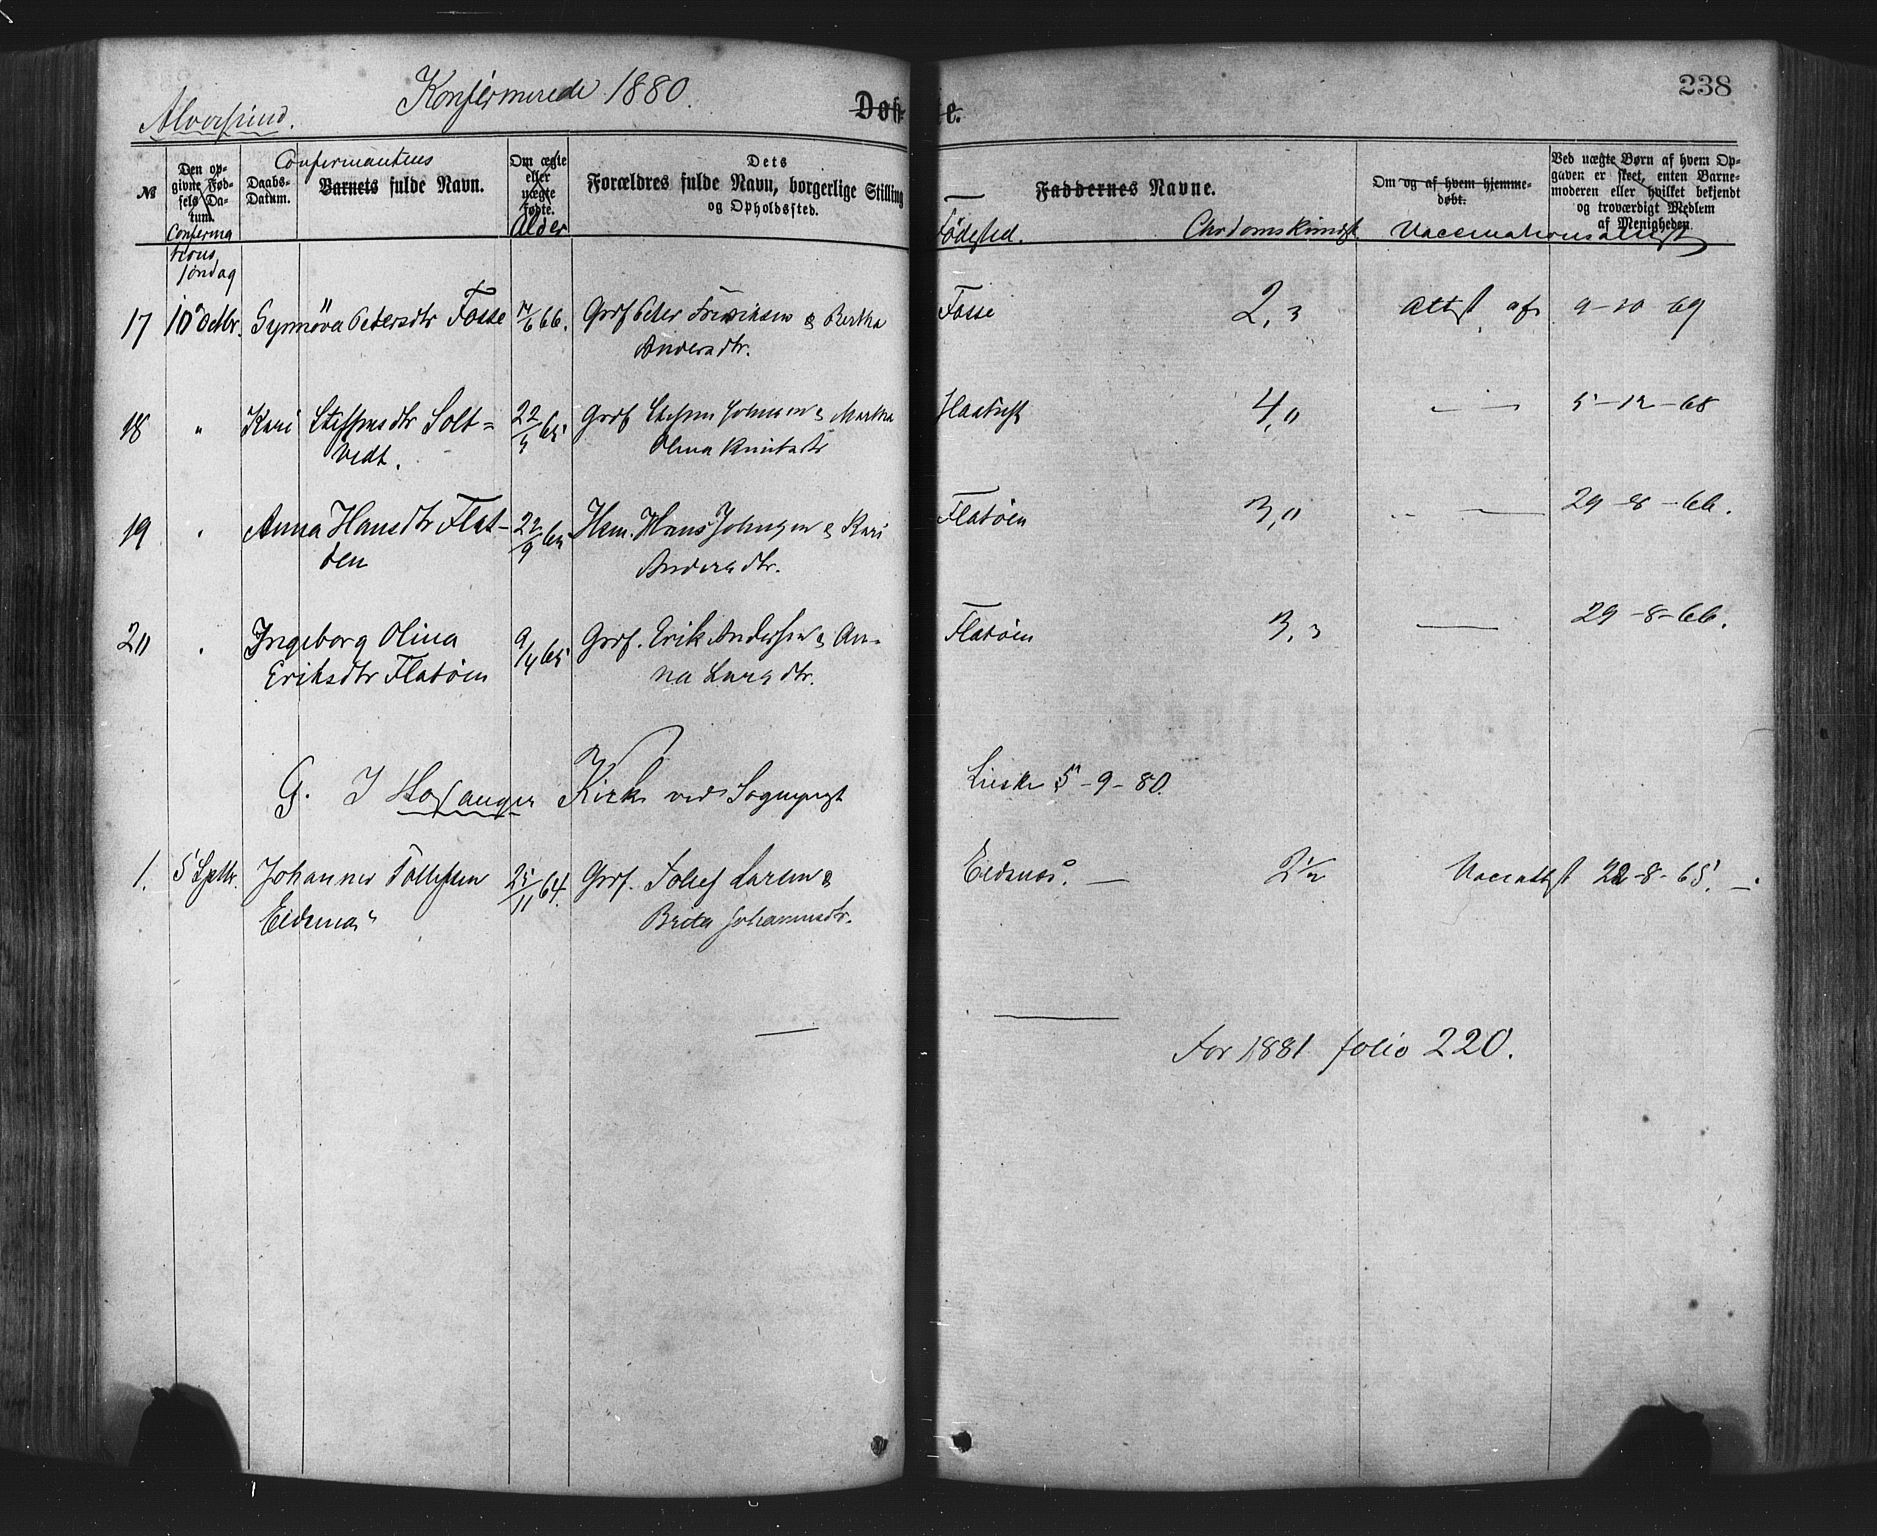 Konfirmerede 1880.
Alversund.
Døb-te.
238
№
Den op-
givne Fød-
sels Da-
tum.
Conferma
tions
söndag
Daabs-
Datum.
Confermantens
Barnets fulde Navn.
Om ægte
eller
uægte
fødte.
Alder
Dets
Forældres fulde Navn, borgerlige Stilling
og Opholdssted.
Faddernes Navne.
Födested.
Christomskundsk.
Om og af hvem hjemme-
døbt.
Vaccinationsattest
Ved uægte Børn af hvem Op-
gaven er skeet, enten Barne-
moderen eller hvilket bekjendt
og troværdigt Medlem
af Menigheden.
17 10 Octbr. Synnöva Petersdtr Fosse 66. Grdf Peter & Bertha
Andersdtr.
Fosse 2,3 Attst af 9-10 69
18 " Kari Steffensdtr Solt=
vedt.
22 65 Grdf Steffen Johnsen & Martha
Olina
4,0 — 5-12-68
19 Anna Hansdtr Flat-
öen
22/9 65 Hsm. Hans Johnsen & Kari
Andersdtr.
Flatöen 3,0 — 29-8-66.
20 Ingeborg Olina
Eriksdtr Flatöen
9/4 65 Grdf. Erik Andersen & An-
na Larsdtr.
Flatöen 3,3 — 29-8-66.
G. I Hosanger Kirke ved Sognepræst
5-9-80.
1. 5 Septbr. Johannes Tollefsen
Eidsnæs
25/11 64. Grdf. Tollef Larsen &
Brita Johannesdtr.
Eidsnæs. — 2½ Vaccattst 22-8-65. —
For 1881 folio 220.